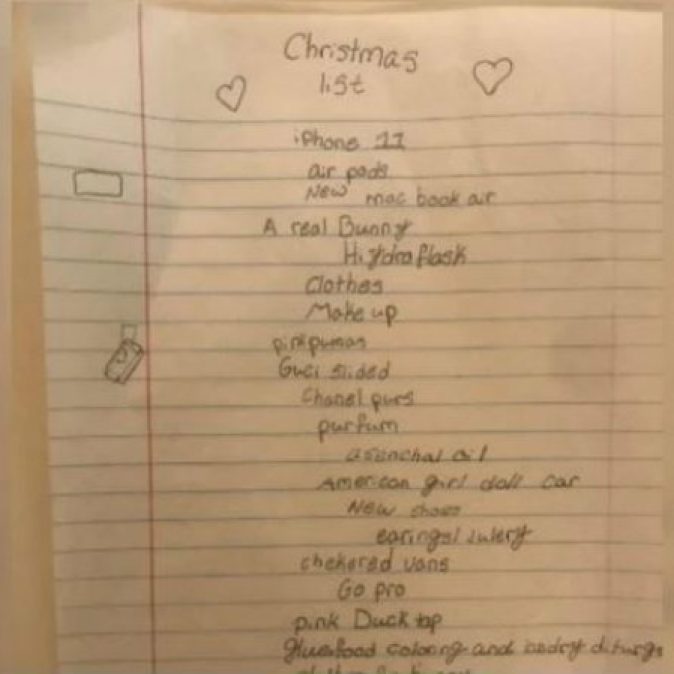 Christmas
list
iPhone 11
air pods
New mac book air
A real Bunny
Hydroflask
Clothes
Make up
pink pumas
Guci slided
Chanel purs
purfum
asenchal oil
American girl doll car
New shoes
earings/julery
chekered vans
Go pro
pink Duck tap
glue food coloring and